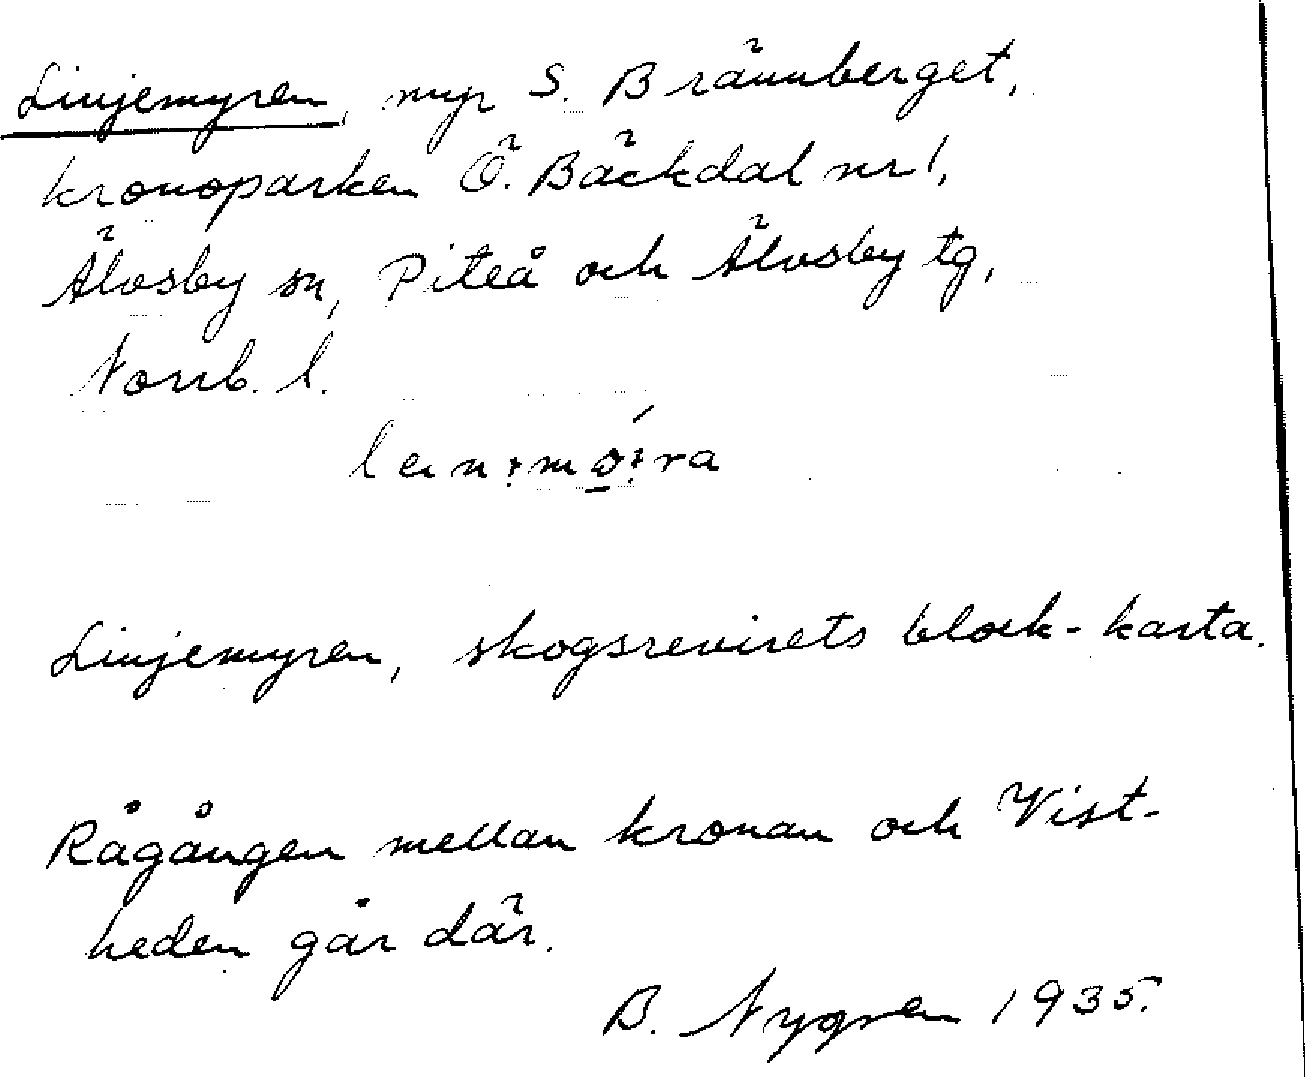 Linjemyren, myr S. Brännberget,
kronoparken Ö. Bäckdal nr 1,
Älvsby sn, Piteå och Älvsby tg,
Norrb. l.
Linjemyren, skogsrevirets block-karta.
Rågången mellan kronan och Vist-
heden går där.
B. Nygren 1935.